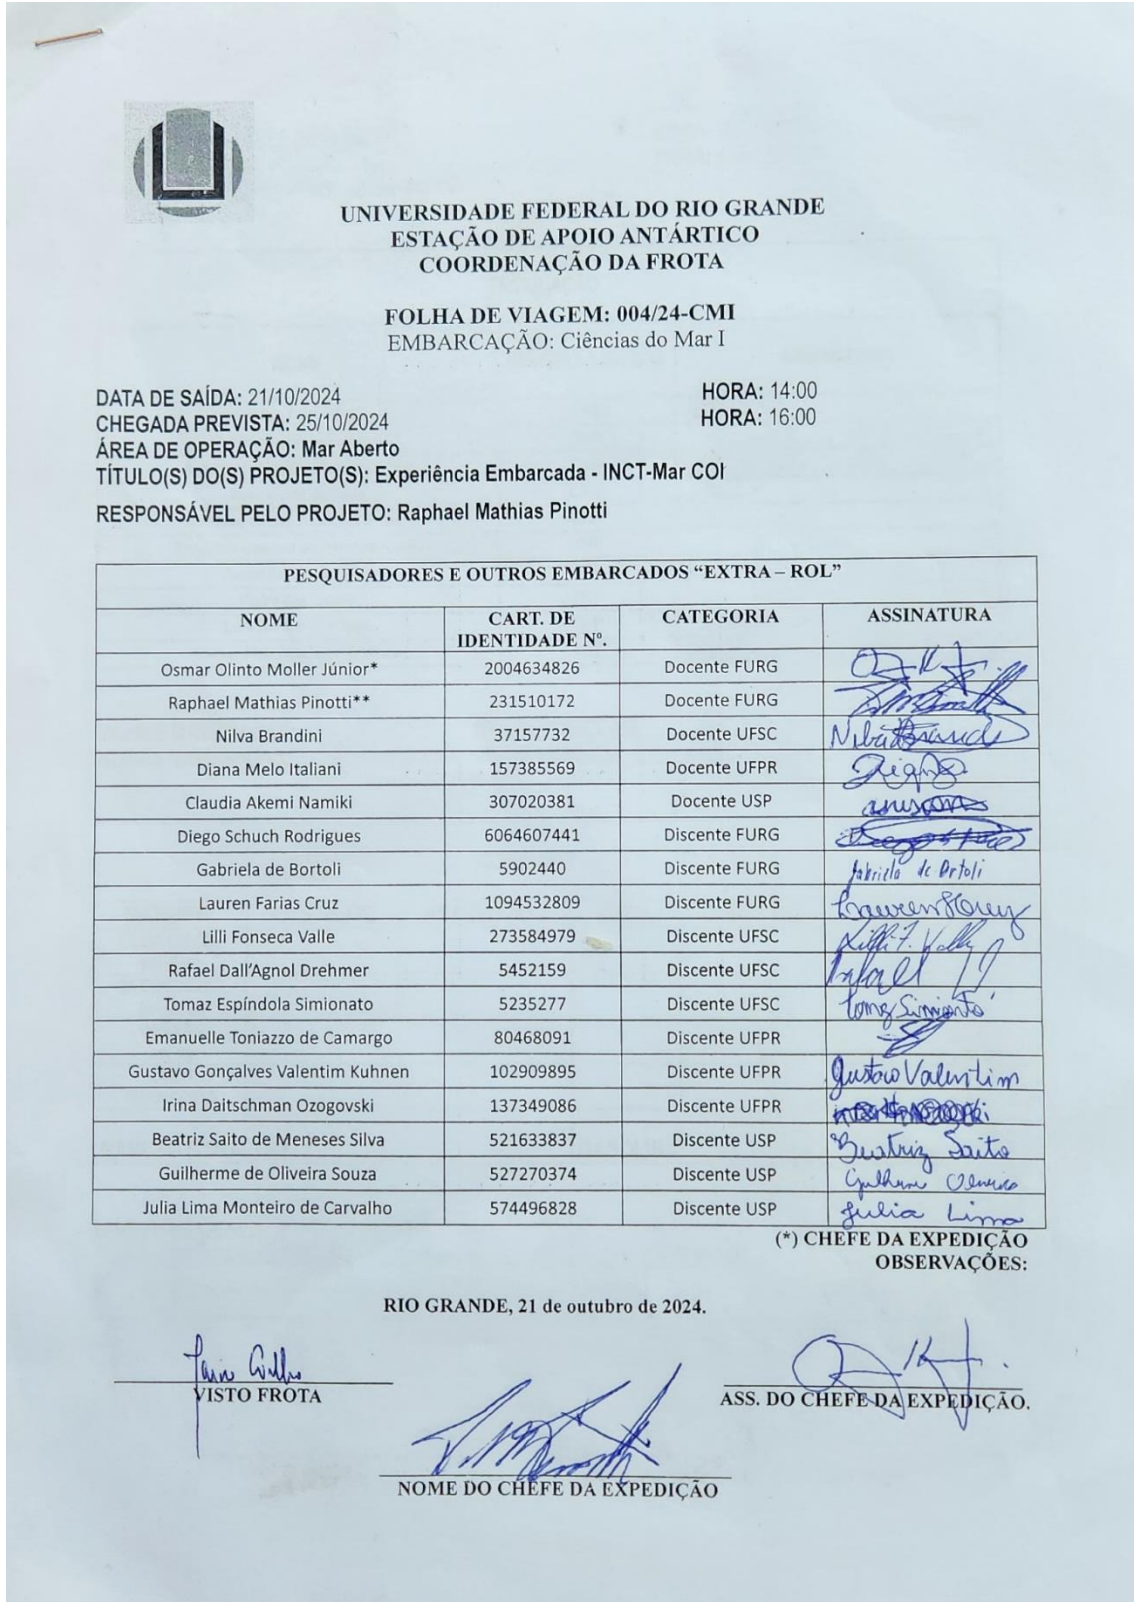 UNIVERSIDADE FEDERAL DO RIO GRANDE
ESTAÇÃO DE APOIO ANTÁRTICO
COORDENAÇÃO DA FROTA
FOLHA DE VIAGEM: 004/24-CMI
EMBARCAÇÃO: Ciências do Mar I
DATA DE SAÍDA: 21/10/2024 HORA: 14:00
CHEGADA PREVISTA: 25/10/2024 HORA: 16:00
ÁREA DE OPERAÇÃO: Mar Aberto
TÍTULO(S) DO(S) PROJETO(S): Experiência Embarcada - INCT-Mar COI
RESPONSÁVEL PELO PROJETO: Raphael Mathias Pinotti
PESQUISADORES E OUTROS EMBARCADOS “EXTRA – ROL”
NOME CART. DE IDENTIDADE Nº. CATEGORIA ASSINATURA
Osmar Olinto Moller Júnior* 2004634826 Docente FURG
Raphael Mathias Pinotti** 231510172 Docente FURG
Nilva Brandini 37157732 Docente UFSC
Diana Melo Italiani 157385569 Docente UFPR
Claudia Akemi Namiki 307020381 Docente USP
Diego Schuch Rodrigues 6064607441 Discente FURG
Gabriela de Bortoli 5902440 Discente FURG Gabriela de
Lauren Farias Cruz 1094532809 Discente FURG
Lilli Fonseca Valle 273584979 Discente UFSC Lilli F.
Rafael Dall’Agnol Drehmer 5452159 Discente UFSC Rafael
Tomaz Espíndola Simionato 5235277 Discente UFSC
Emanuelle Toniazzo de Camargo 80468091 Discente UFPR
Gustavo Gonçalves Valentim Kuhnen 102909895 Discente UFPR Gustavo Valentim
Irina Daitschman Ozogovski 137349086 Discente UFPR
Beatriz Saito de Meneses Silva 521633837 Discente USP Beatriz Saito
Guilherme de Oliveira Souza 527270374 Discente USP Guilherme
Julia Lima Monteiro de Carvalho 574496828 Discente USP Julia Lima
(*) CHEFE DA EXPEDIÇÃO
OBSERVAÇÕES:
RIO GRANDE, 21 de outubro de 2024.
VISTO FROTA
ASS. DO CHEFE DA EXPEDIÇÃO.
NOME DO CHEFE DA EXPEDIÇÃO